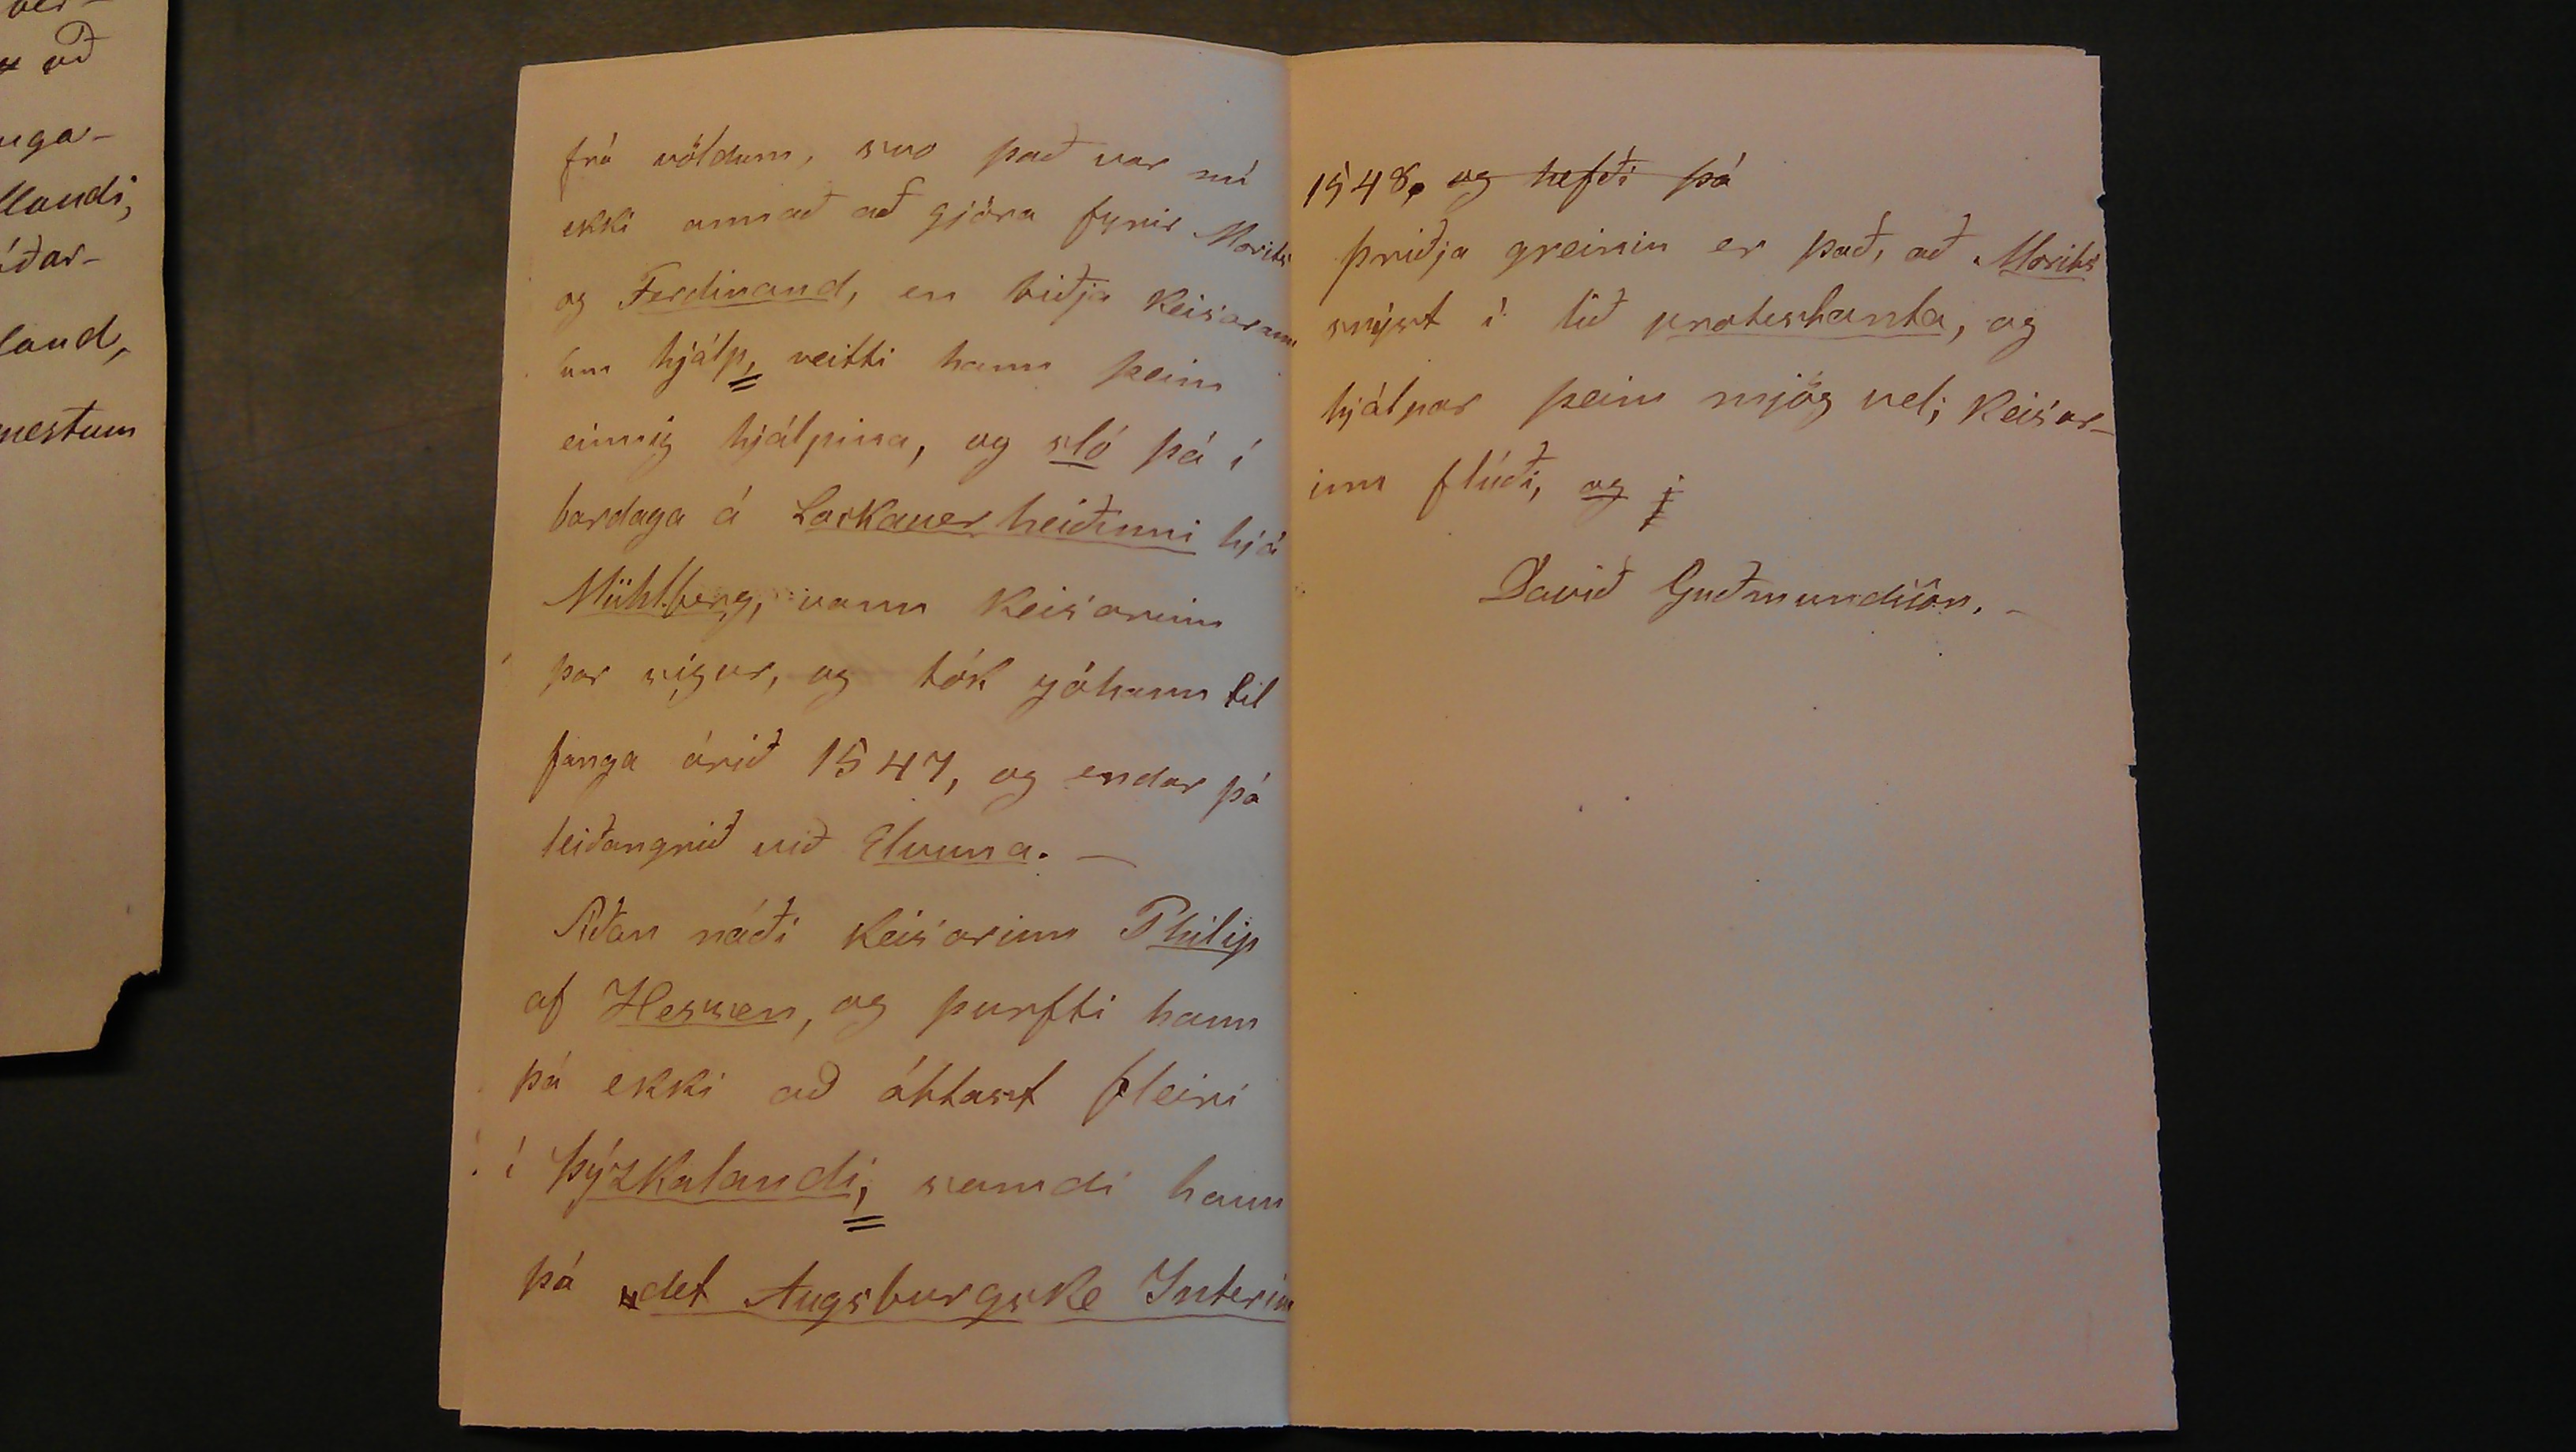 ver-
að
unga-
llandi,
íðar-
land,
mestum
frá völdum, svo það var nú
ekki annað að gjöra fyrir Morits
og Ferdinand, en biðja Keisarann
um hjálp, veitti hann þeim
einnig hjálpina, og sló þá í
bardaga á Lockauerheiðinni hjá
Mühlberg, vann Keisarinn
þar sigur, og tók Jóhann til
fanga árið 1547, og endar þá
leiðangrið við Elvuna. —
Aðan náði Keisarinn Philip
af Hessen, og þurfti hann
þá ekki að óttast fleiri
í Þýzkalandi, samdi hann
þá „det Augsburgske Interim
1548, og hefði þá
þriðja greinin er það, að Morits
snýst í lið protestanta, og
hjálpar þeim mjög vel; Keisar-
inn flúði, og í
Davið Guðmundsson. -